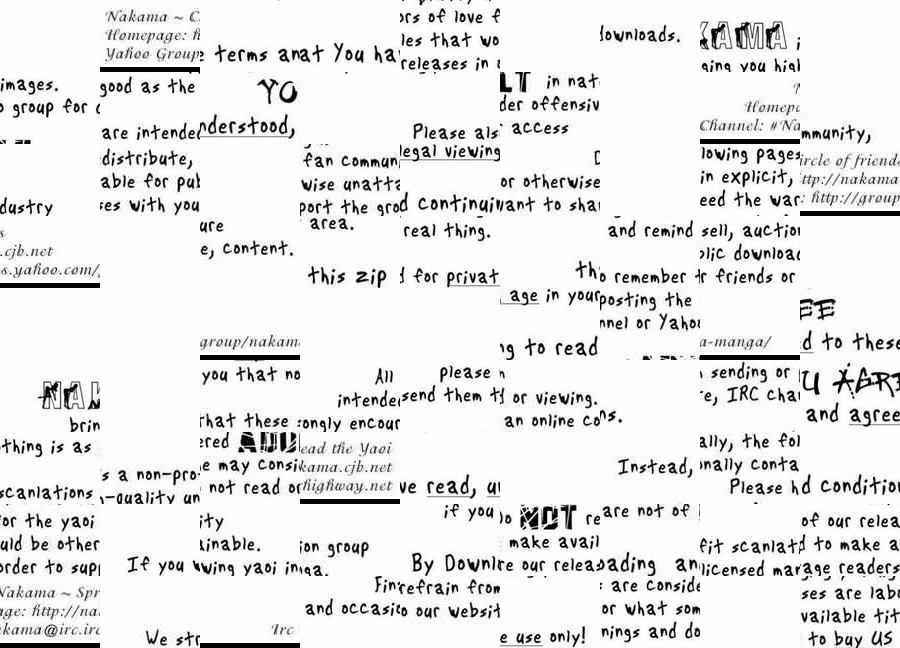 Nakama ~ C
ors of love f
Homepage: h
les that wo
ownloads.
KAMA
Yahoo Group
terms an
at You ha
releases in
ging you high
images.
good as the
YO
LT in nat
o group for
der offensiv
Homep
are intende
nderstood,
Please als
access
Channel: #Na
mmunity,
distribute,
fan commun
legal viewing
lowing pages
ircle of friends
able for pub
wise unatta
or otherwise
in explicit,
ttp://nakama
dustry
ses with you
port the gro
d continui
want to sha
eed the war
: http://group
are
area.
real thing.
and remind
sell, auction
.cjb.net
e, content.
blic download
s.yahoo.com/
this zip
d for privat
tho
remember
r friends or
age in your
posting the
EE
nnel or Yaho
group/nakam
ng to read
a-manga/
d to these
you that no
All
please
sending or
U AGRE
NAK
intende
send them t
or viewing.
e, IRC cha
brin
that these
ongly encour
an online co
ns.
and agree
thing is as
ered ADU
ead the Yaoi
ally, the fol
s a non-pro
e may consi
kama.cjb.net
Instead,
nally conta
scanlations
-quality an
not read or
highway.net
ve read, u
Please
d condition
for the yaoi
ity
if you
o NOT re
are not of
of our relea
uld be other
ainable.
ion group
make avail
fit scanlat
d to make a
order to supp
If you
wing yaoi in
ga.
By Downl
re our relea
oading an
licensed man
age readers
Nakama ~ Spr
Fin
refrain from
are conside
ses are lab
age: http://na
and occasio
our websit
or what som
vailable tit
akama@irc.irc
We str
Irc
e use only!
nings and do
to buy US